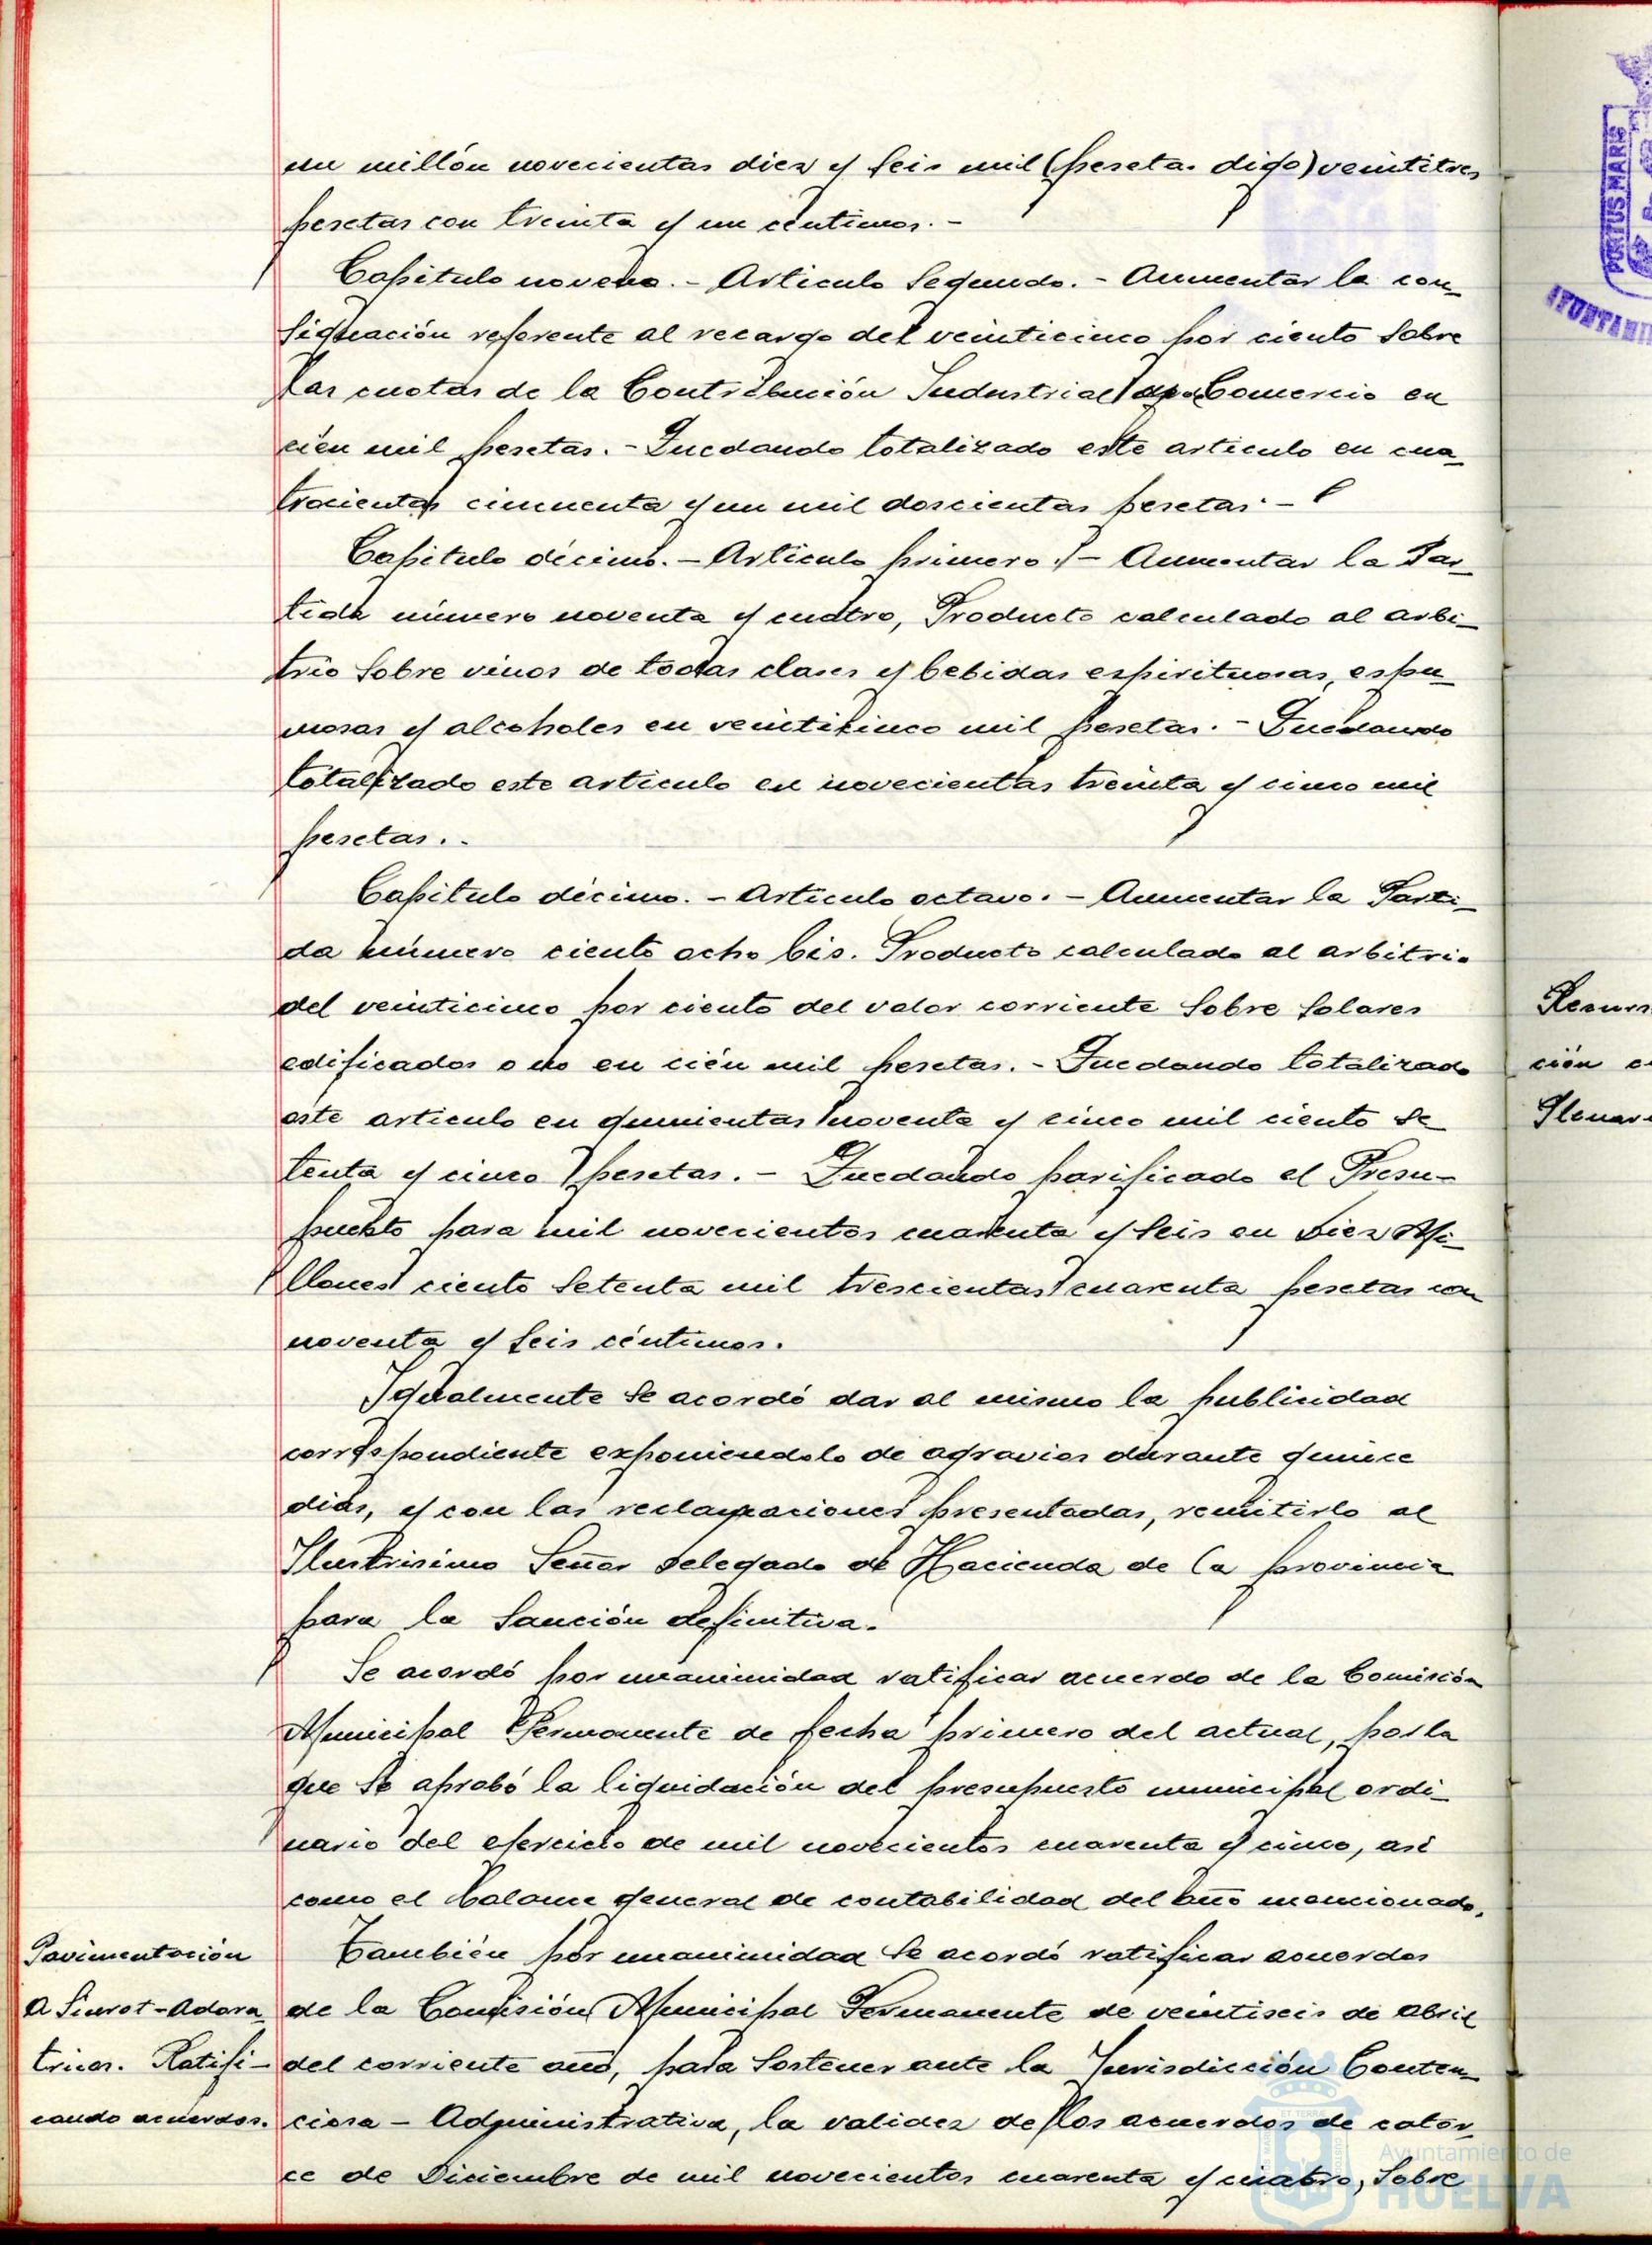 un millón novecientas diez y seis mil (pesetas digo) veintitres
pesetas con treinta y un céntimos.-
Capitulo noveno.- Articulo Segundo.- Aumentar la con-
signación referente al recargo del veinticinco por ciento sobre
las cuotas de la Contribución Industrial de Comercio en
cien mil pesetas.- Quedando totalizado este articulo en cua-
trocientas cincuenta y un mil doscientas pesetas.-
Capitulo décimo.- Articulo primero.- Aumentar la Par-
tida número noventa y cuatro, Producto calculado al arbi-
trio sobre vinos de todas clases y bebidas espirituosas, espu-
mosas y alcoholes en veinticinco mil pesetas.- Quedando
totalizado este articulo en novecientas treinta y cinco mil
pesetas.-
Capitulo décimo.- Articulo octavo.- Aumentar la Parti-
da número ciento ocho bis. Producto calculado al arbitrio
del veinticinco por ciento del valor corriente sobre solares
edificados o no en cién mil pesetas.- Quedando totalizado
este articulo en quinientas noventa y cinco mil ciento se-
tenta y cinco pesetas.- Quedando parificado el Presu-
puesto para mil novecientos cuarenta y seis en Diez Mi-
llones ciento setenta mil trescientas cuarenta pesetas con
noventa y seis céntimos.
Igualmente se acordó dar al mismo la publicidad
correspondiente exponiendolo de agravios durante quince
dias, y con las reclamaciones presentadas, remitirlo al
Ilustrisimo Señor Delegado de Hacienda de la provincia
para la sanción definitiva.
Se acordó por unanimidad ratificar acuerdo de la Comisión
Municipal Permanente de fecha primero del actual, por la
que se aprobó la liquidación del presupuesto municipal ordi-
nario del ejercicio de mil novecientos cuarenta y cinco, asi
como el balance general de contabilidad del año mencionado.
Pavimentación
a Siurot-Adora-
trices. Ratifi-
cando acuerdos.
También por unanimidad se acordó ratificar acuerdos
de la Comisión Municipal Permanente de veintiseis de Abril
del corriente año, para sostener ante la Jurisdicción Conten-
ciosa - Administrativa, la validez de los acuerdos de cator-
ce de Diciembre de mil novecientos cuarenta y cuatro, sobre
PORTUS MARIS
Ayuntamiento de
HUELVA